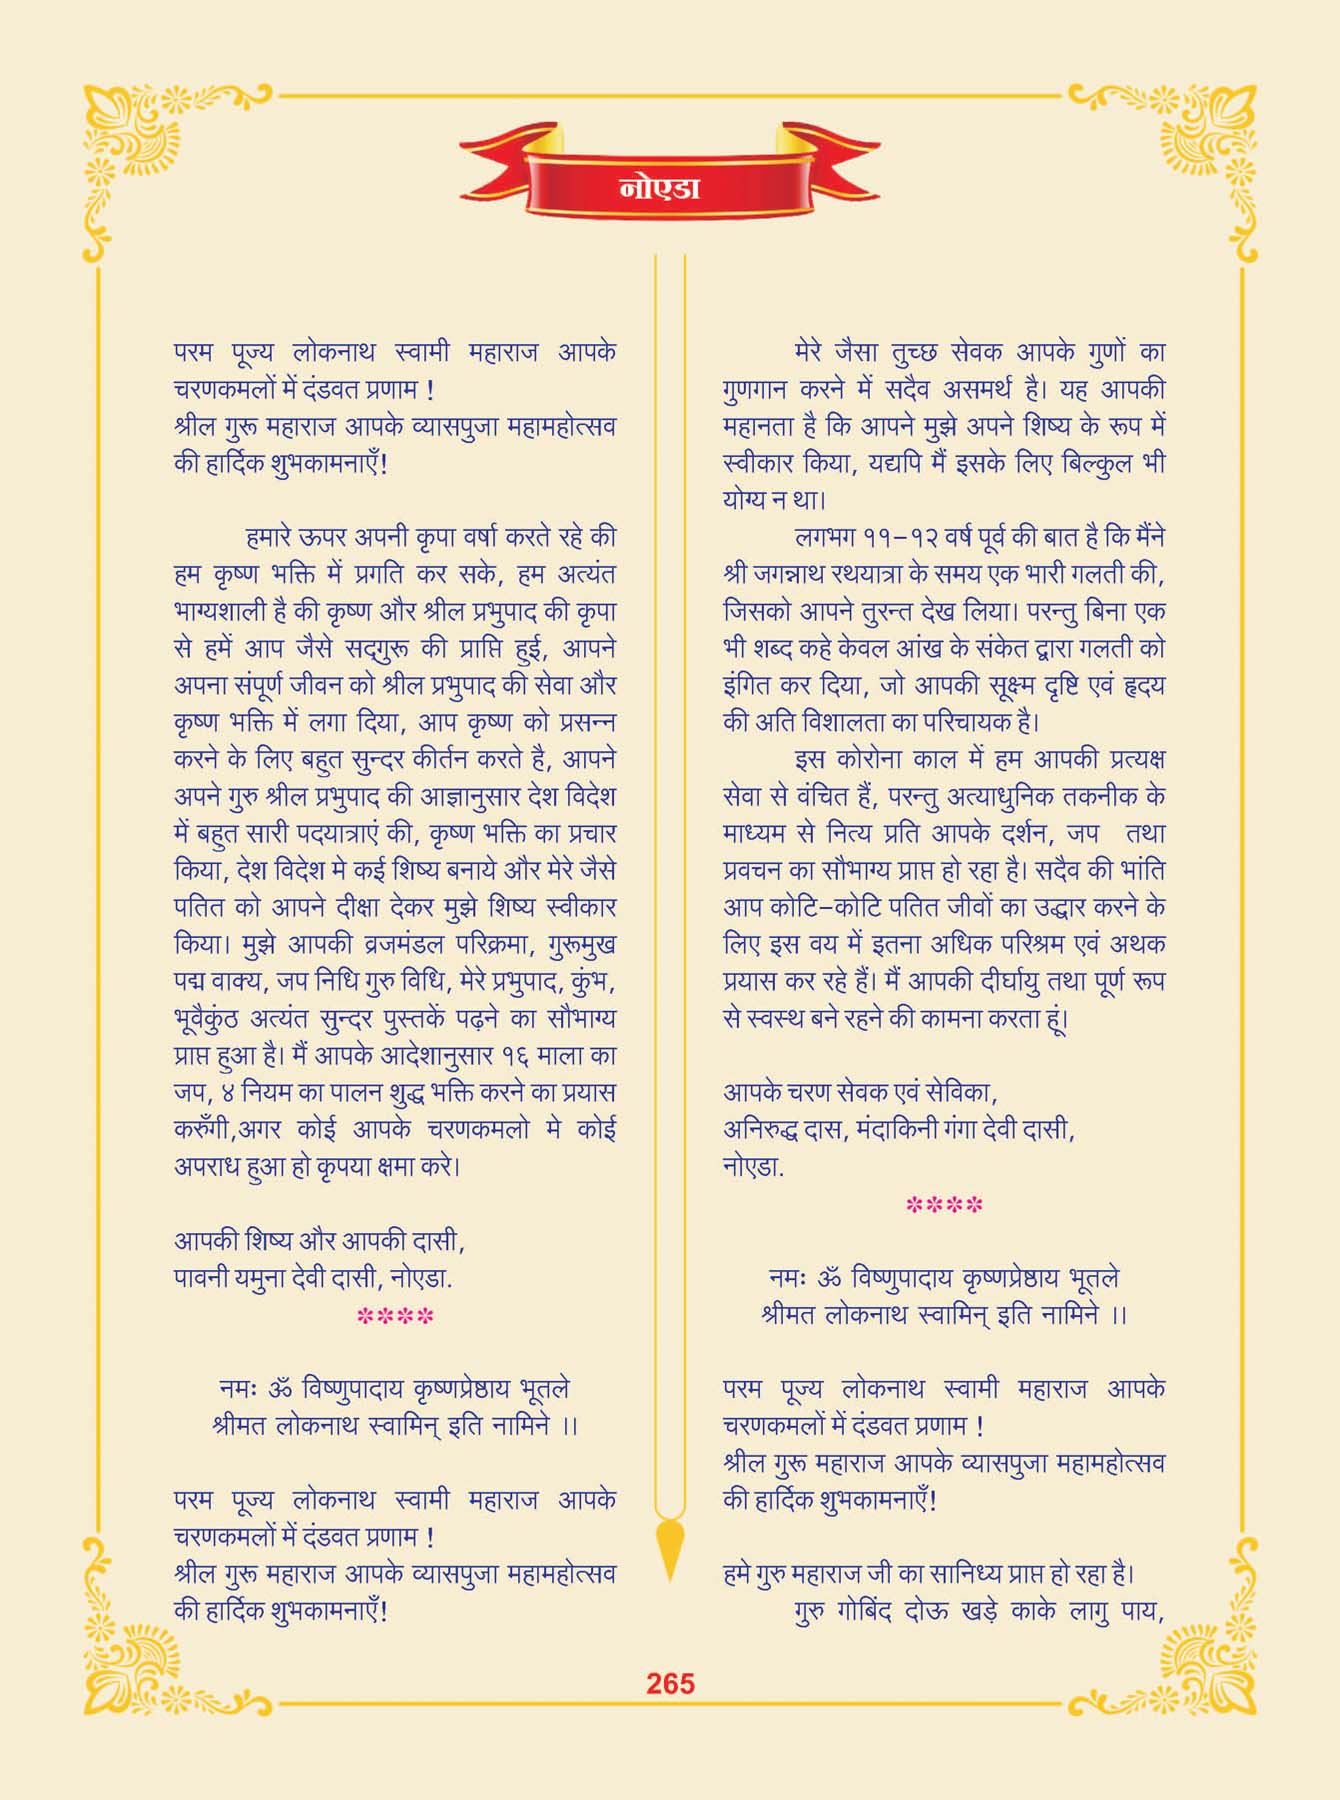 नोएडा
परम पूज्य लोकनाथ स्वामी महाराज आपके
चरणकमलों में दंडवत प्रणाम !
श्रील गुरू महाराज आपके व्यासपुजा महामहोत्सव
की हार्दिक शुभकामनाएँ!
हमारे ऊपर अपनी कृपा वर्षा करते रहे की
हम कृष्ण भक्ति में प्रगति कर सके, हम अत्यंत
भाग्यशाली है की कृष्ण और श्रील प्रभुपाद की कृपा
से हमें आप जैसे सद्‌गुरू की प्राप्ति हुई, आपने
अपना संपूर्ण जीवन को श्रील प्रभुपाद की सेवा और
कृष्ण भक्ति में लगा दिया, आप कृष्ण को प्रसन्न
करने के लिए बहुत सुन्दर कीर्तन करते है, आपने
अपने गुरु श्रील प्रभुपाद की आज्ञानुसार देश विदेश
में बहुत सारी पदयात्राएं की, कृष्ण भक्ति का प्रचार
किया, देश विदेश मे कई शिष्य बनाये और मेरे जैसे
पतित को आपने दीक्षा देकर मुझे शिष्य स्वीकार
किया। मुझे आपकी व्रजमंडल परिक्रमा, गुरूमुख
पद्म वाक्य, जप निधि गुरु विधि, मेरे प्रभुपाद, कुंभ,
भूवैकुंठ अत्यंत सुन्दर पुस्तकें पढ़ने का सौभाग्य
प्राप्त हुआ है। मैं आपके आदेशानुसार १६ माला का
जप, ४ नियम का पालन शुद्ध भक्ति करने का प्रयास
करुँगी,अगर कोई आपके चरणकमलो मे कोई
अपराध हुआ हो कृपया क्षमा करे।
आपकी शिष्य और आपकी दासी,
पावनी यमुना देवी दासी, नोएडा.
****
नमः ॐ विष्णुपादाय कृष्णप्रेष्ठाय भूतले
श्रीमत लोकनाथ स्वामिन् इति नामिने ।।
परम पूज्य लोकनाथ स्वामी महाराज आपके
चरणकमलों में दंडवत प्रणाम !
श्रील गुरू महाराज आपके व्यासपुजा महामहोत्सव
की हार्दिक शुभकामनाएँ!
मेरे जैसा तुच्छ सेवक आपके गुणों का
गुणगान करने में सदैव असमर्थ है। यह आपकी
महानता है कि आपने मुझे अपने शिष्य के रूप में
स्वीकार किया, यद्यपि मैं इसके लिए बिल्कुल भी
योग्य न था।
लगभग ११–१२ वर्ष पूर्व की बात है कि मैंने
श्री जगन्नाथ रथयात्रा के समय एक भारी गलती की,
जिसको आपने तुरन्त देख लिया। परन्तु बिना एक
भी शब्द कहे केवल आंख के संकेत द्वारा गलती को
इंगित कर दिया, जो आपकी सूक्ष्म दृष्टि एवं हृदय
की अति विशालता का परिचायक है।
इस कोरोना काल में हम आपकी प्रत्यक्ष
सेवा से वंचित हैं, परन्तु अत्याधुनिक तकनीक के
माध्यम से नित्य प्रति आपके दर्शन, जप तथा
प्रवचन का सौभाग्य प्राप्त हो रहा है। सदैव की भांति
आप कोटि–कोटि पतित जीवों का उद्धार करने के
लिए इस वय में इतना अधिक परिश्रम एवं अथक
प्रयास कर रहे हैं। मैं आपकी दीर्घायु तथा पूर्ण रूप
से स्वस्थ बने रहने की कामना करता हूं।
आपके चरण सेवक एवं सेविका,
अनिरुद्ध दास, मंदाकिनी गंगा देवी दासी,
नोएडा.
****
नमः ॐ विष्णुपादाय कृष्णप्रेष्ठाय भूतले
श्रीमत लोकनाथ स्वामिन् इति नामिने ।।
परम पूज्य लोकनाथ स्वामी महाराज आपके
चरणकमलों में दंडवत प्रणाम !
श्रील गुरू महाराज आपके व्यासपुजा महामहोत्सव
की हार्दिक शुभकामनाएँ!
हमे गुरु महाराज जी का सानिध्य प्राप्त हो रहा है।
गुरु गोबिंद दोऊ खड़े काके लागु पाय,
265